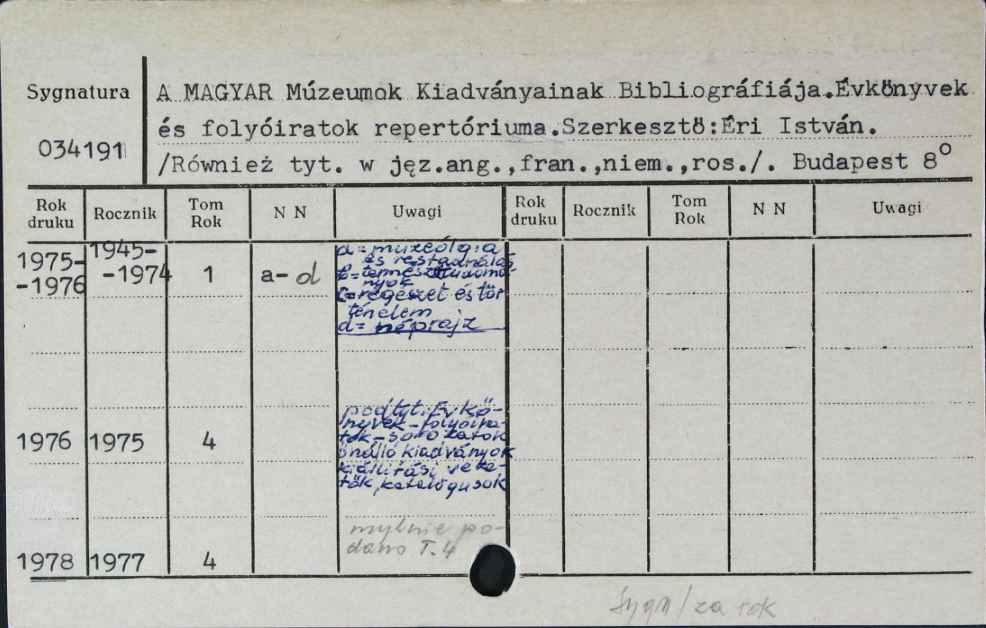 Sygnatura
034191
A MAGYAR Múzeumok Kiadványainak Bibliográfiája.Évkönyvek
és folyóiratok repertóriuma.Szerkesztö:Éri István.
/Również tyt. w jęz.ang.,fran.,niem.,ros./. Budapest 8°
Rok druku Rocznik Tom Rok N N Uwagi Rok druku Rocznik Tom Rok N N Uwagi
1975-
-1976
1945-
-1974
1
a-d
a=
és
b=
nyok
c=régeszet és tör
ténelem
d= néprajz
1976 1975 4
podtyt. Évkö-
nyvek-folyóira-
tok-sorozatok
önálló kiadványok
kiállitási veze-
tök, katalógusok
mylnie po-
dano T.4
1978 1977 4
Sygn/za rok